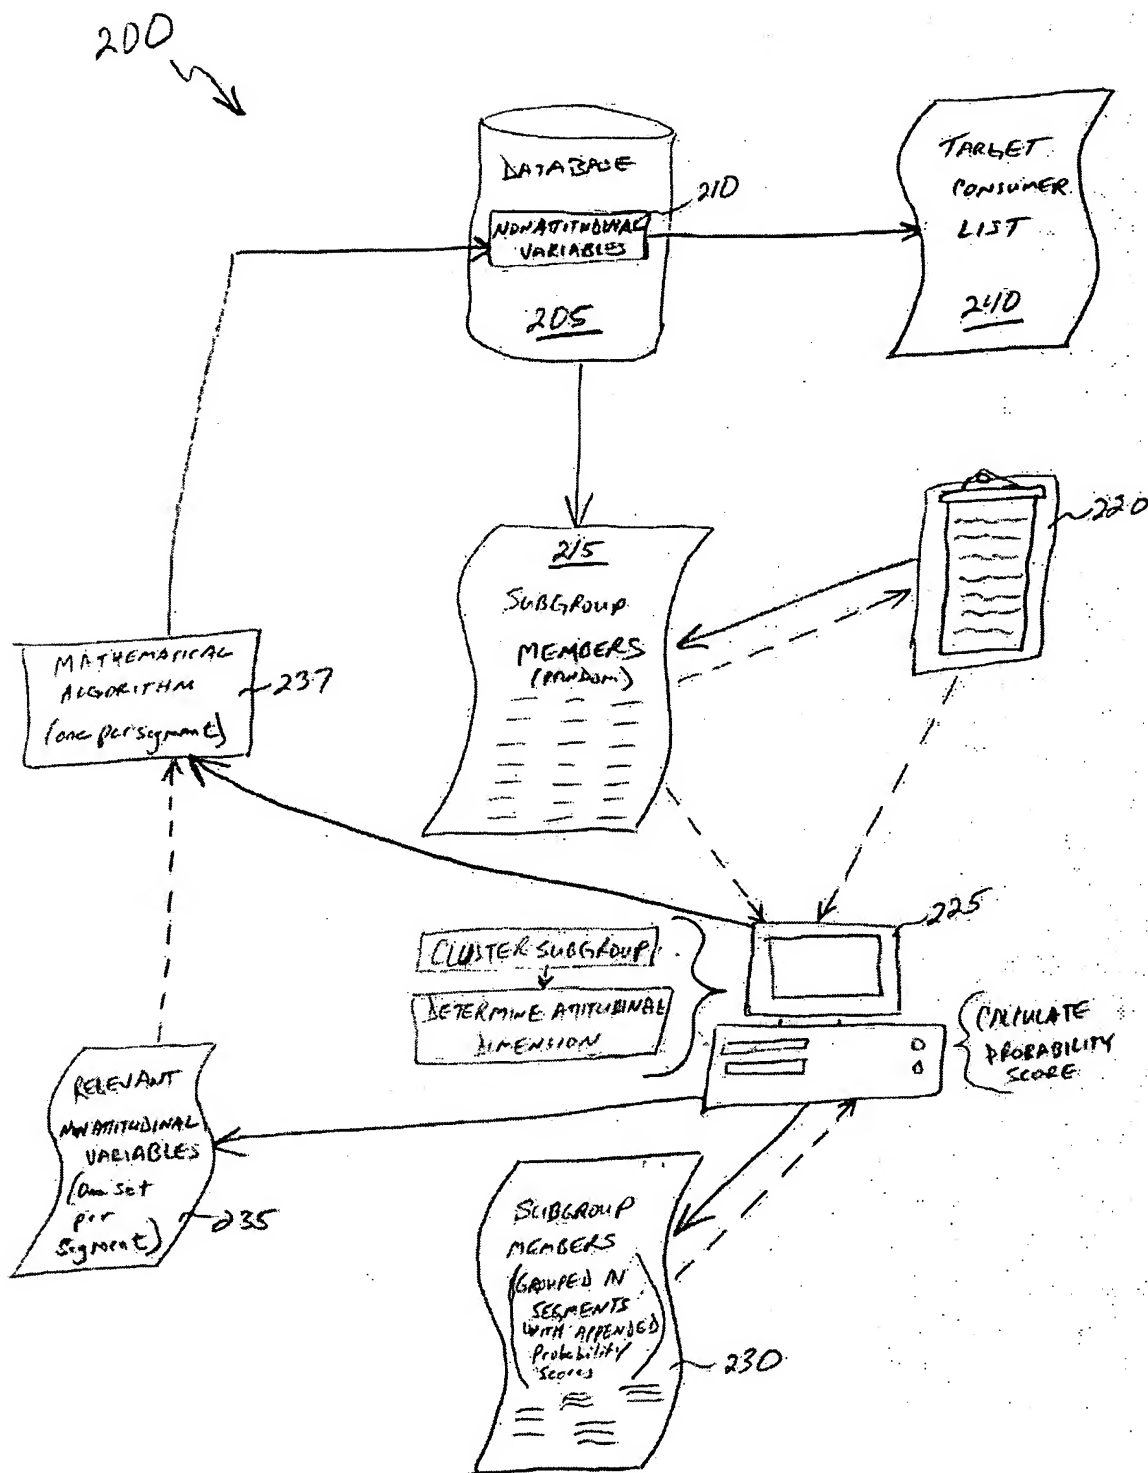 200
DATABASE
210
NONATTITUDINAL
VARIABLES
205
TARGET
CONSUMER
LIST
240
215
SUBGROUP
MEMBERS
(RANDOM)
220
MATHEMATICAL
ALGORITHM
(one per segment)
237
225
CLUSTER SUBGROUP
DETERMINE ATTITUDINAL
DIMENSION
CALCULATE
PROBABILITY
SCORE
RELEVANT
NONATTITUDINAL
VARIABLES
(One set
per
segment)
235
SUBGROUP
MEMBERS
(GROUPED IN
SEGMENTS
WITH APPENDED
Probability
Scores)
230